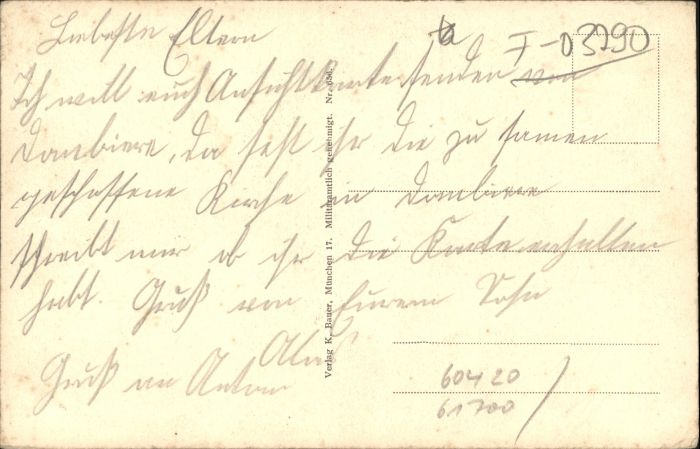 Liebeste Eltern
Ich will euch Ansichtkarte senden von
Dombiere, da seht ihr die zu samen
geschossene Kirche in Dombiere
schreibt mir ob ihr die Karte erhalten
habt. Gruß von Eurem Sohn
Gruß an Anton
F-D3290
Verlag K. Bauer, München 17. Militäramtlich genehmigt. Nr. 636.
60420
61700